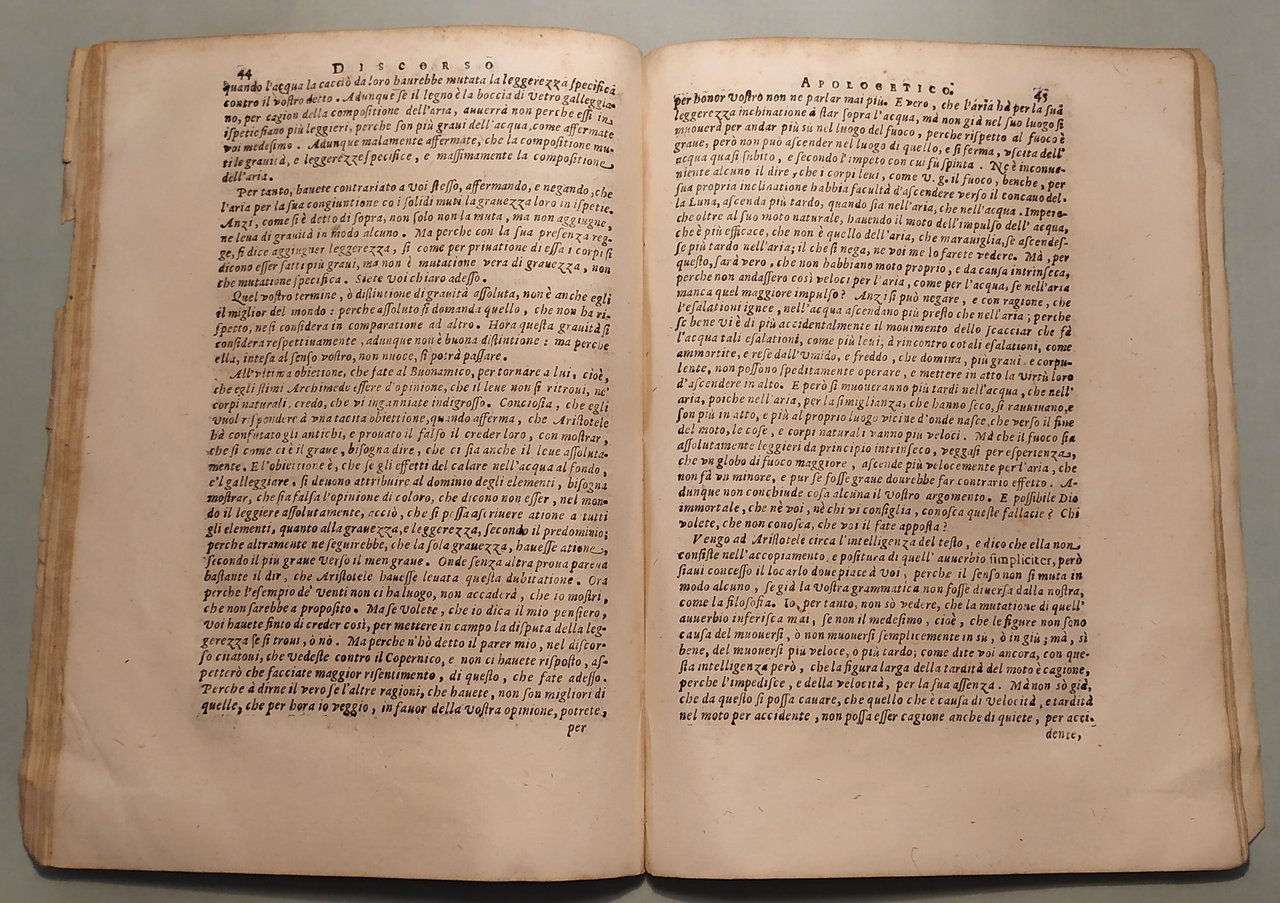 44
DISCORSO
quando l'acqua la cacciò da loro haurebbe mutata la leggerezza specifica
contro il vostro detto. Adunque se il legno è la boccia di vetro galleggia-
no, per cagion della compositione dell'aria, auuerrà non perche essi in
ispetie siano più leggieri, perche son più graui dell'acqua, come affermate
voi medesimo. Adunque malamente affermate, che la compositione mu-
ti le grauità, e leggerezze specifice, e massimamente la compositione
dell'aria.
Per tanto, hauete contrariato a voi stesso, affermando, e negando, che
l'aria per la sua congiuntione co i solidi muti la grauezza loro in ispetie.
Anzi, come si è detto di sopra, non solo non la muta, ma non aggiugne,
ne leua di grauità in modo alcuno. Ma perche con la sua presenza reg-
ge, si dice aggiugner leggerezza, si come per priuatione di essa i corpi si
dicono esser fatti più graui, ma non è mutatione vera di grauezza, non
che mutatione specifica. Siete voi chiaro adesso.
Quel vostro termine, ò distintione di grauità assoluta, non è anche egli
il miglior del mondo: perche assoluto si domanda quello, che non ha ri-
spetto, ne si considera in comparatione ad altro. Hora questa grauità si
considera respettiuamente, adunque non è buona distintione: ma perche
ella, intesa al senso vostro, non nuoce, si potrà passare.
All'vltima obietione, che fate al Buonamico, per tornare a lui, cioè,
che egli stimi Archimede essere d'opinione, che il leue non si ritroui, ne'
corpi naturali, credo, che vi inganniate indigrosso. Conciosia, che egli
vuol rispondere à vna tacita obiettione, quando afferma, che Aristotele
hà confutato gli antichi, e prouato il falso il creder loro, con mostrar,
che si come ci è il graue, bisogna dire, che ci sia anche il leue assoluta-
mente. E l'obiettione è, che se gli effetti del calare nell'acqua al fondo,
e'l galleggiare, si deuono attribuire al dominio degli elementi, bisogna
mostrar, che sia falsa l'opinione di coloro, che dicono non esser, nel mon-
do il leggiere assolutamente, acciò, che si possa ascriuere atione a tutti
gli elementi, quanto alla grauezza, e leggerezza, secondo il predominio;
perche altramente ne seguirebbe, che la sola grauezza, hauesse atione,
secondo il più graue verso il men graue. Onde senza altra proua pareua
bastante il dir, che Aristotele hauesse leuata questa dubitatione. Ora
perche l'esempio de' venti non ci ha luogo, non accaderà, che io mostri,
che non sarebbe a proposito. Ma se volete, che io dica il mio pensiero,
voi hauete finto di creder così, per mettere in campo la disputa della leg-
gerezza se si troui, ò nò. Ma perche n'hò detto il parer mio, nel discor-
so citatoui, che vedeste contro il Copernico, e non ci hauete risposto, as-
petterò che facciate maggior risentimento, di questo, che fate adesso.
Perche à dirne il vero se l'altre ragioni, che hauete, non son migliori di
quelle, che per hora io veggio, in fauor della vostra opinione, potrete,
per
APOLOGETICO.
45
per honor vostro non ne parlar mai più. E vero, che l'aria hà per la sua
leggerezza inchinatione à star sopra l'acqua, mà non già nel suo luogo si
muouerà per andar più sù nel luogo del fuoco, perche rispetto al fuoco è
graue, però non può ascender nel luogo di quello, e si ferma, vscita dell'
acqua quasi subito, e secondo l'impeto con cui fù spinta. Ne è inconue-
niente alcuno il dire, che i corpi leui, come v. g. il fuoco, benche, per
sua propria inclinatione habbia facultà d'ascendere verso il concauo del-
la Luna, ascenda più tardo, quando sia nell'aria, che nell'acqua. Impero-
che oltre al suo moto naturale, hauendo il moto dell'impulso dell' acqua,
che è più efficace, che non è quello dell'aria, che marauiglia, se ascendes-
se più tardo nell'aria; il che si nega, ne voi me lo farete vedere. Mà, per
questo, sarà vero, che non habbiano moto proprio, e da causa intrinseca,
perche non andassero così veloci per l'aria, come per l'acqua, se nell'aria
manca quel maggiore impulso? Anzi si può negare, e con ragione, che
l'esalationi ignee, nell'acqua ascendano più presto che nell'aria; perche
se bene vi è di più accidentalmente il mouimento dello scacciar che fà
l'acqua tali esalationi, come più leui; à rincontro cotali esalationi, come
ammortite, e rese dall'vmido, e freddo, che domina, più graui e corpu-
lente, non possono speditamente operare, e mettere in atto la virtù loro
d'ascendere in alto. E però si muoueranno più tardi nell'acqua, che nell'
aria, poiche nell'aria, per la simiglianza, che hanno seco, si rauuiuano, e
son più in atto, e più al proprio luogo vicine d'onde nasce, che verso il fine
del moto, le cose, e corpi naturali vanno più veloci. Mà che il fuoco sia
assolutamente leggieri da principio intrinseco, veggasi per esperienza,
che vn globo di fuoco maggiore, ascende più velocemente per l'aria, che
non fà vn minore, e pur se fosse graue dourebbe far contrario effetto. A-
dunque non conchiude cosa alcuna il vostro argomento. E possibile Dio
immortale, che nè voi, nè chi vi consiglia, conosca queste fallacie? Chi
volete, che non conosca, che voi il fate apposta?
Vengo ad Aristotele circa l'intelligenza del testo, e dico che ella non
consiste nell'accopiamento, e positura di quell' auuerbio simpliciter, però
siaui concesso il locarlo doue piace à voi, perche il senso non si muta in
modo alcuno, se già la vostra grammatica non fosse diuersa dalla nostra,
come la filosofia. Io, per tanto, non sò vedere, che la mutatione di quell'
auuerbio inferisca mai, se non il medesimo, cioè, che le figure non seno
causa del muouersi, ò non muouersi semplicemente in su, ò in giù; mà, sì
bene, del muouersi più veloce, o più tardo; come dite voi ancora, con que-
sta intelligenza però, che la figura larga della tardità del moto è cagione,
perche l'impedisce, e della velocità, per la sua assenza. Mà non sò già,
che da questo si possa cauare, che quello che è causa di velocità, e tardità
nel moto per accidente, non possa esser cagione anche di quiete, per acci-
dente,